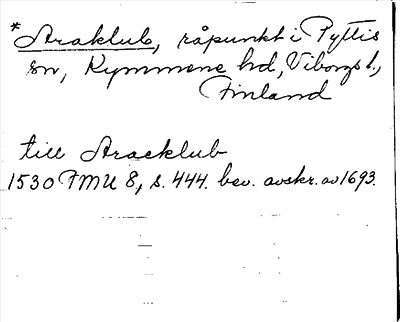 *Araklub, råpunkt i Pyttis
sn, Kymmene hd, Viborgs l.,
Finland
till Aracklub
1530 FMU 8, s. 444. bev. avskr. av 1693.